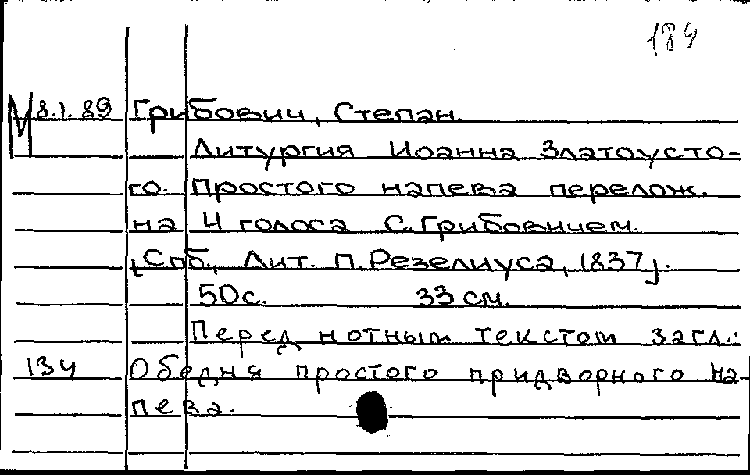 184
М 8.1.89 Грибович, Степан.
Литургия Иоанна Златоусто-
го. Простого напева перелож.
на 4 голоса С. Грибовичем.
[Спб., Лит. П. Резелиуса, 1837].
50 с. 33 см.
Перед нотным текстом загл.:
134 Обедня простого придворного на-
пева.